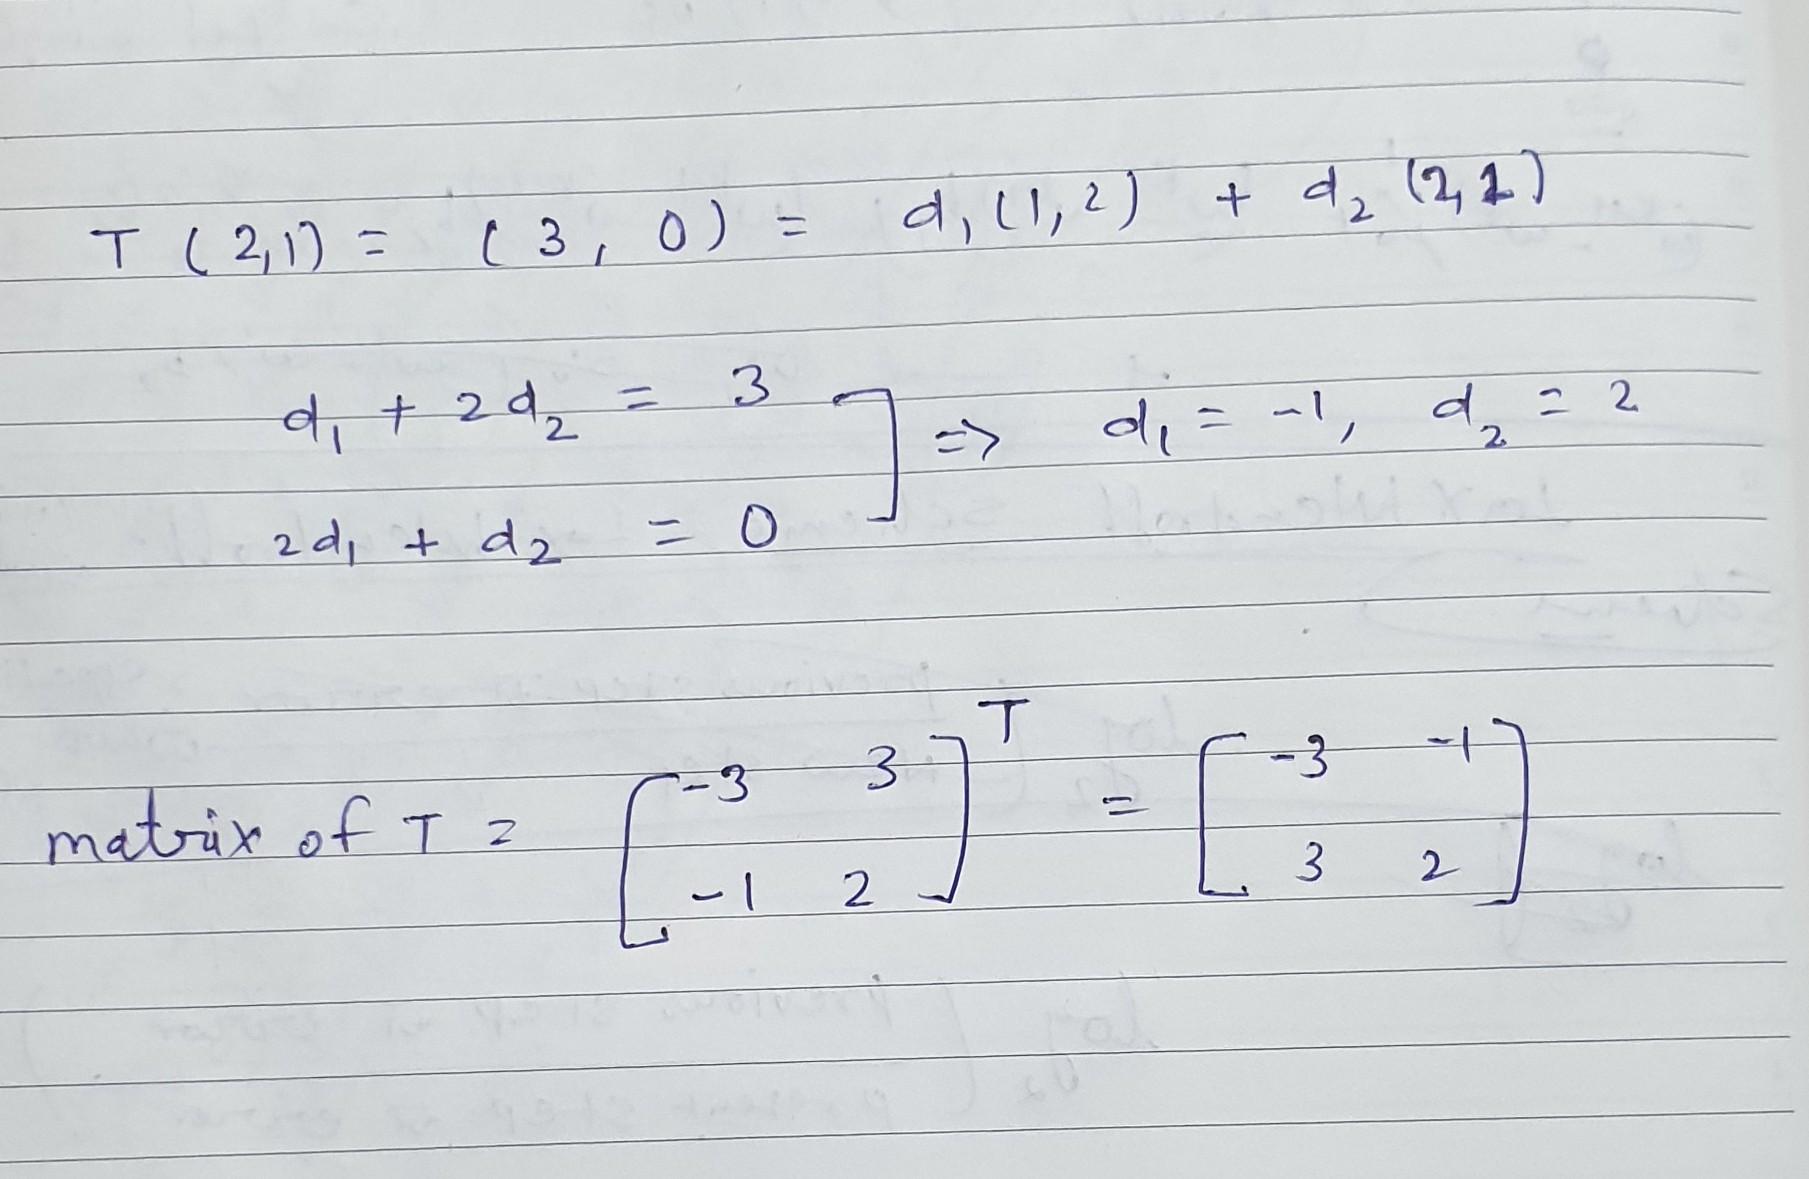 T (2,1) = (3, 0) = d₁(1,2) + d₂(2,1)
d₁ + 2d₂ = 3 ] => d₁ = -1, d₂ = 2
2d₁ + d₂ = 0
matrix of T = [-3 3; -1 2]ᵀ = [-3 -1; 3 2]